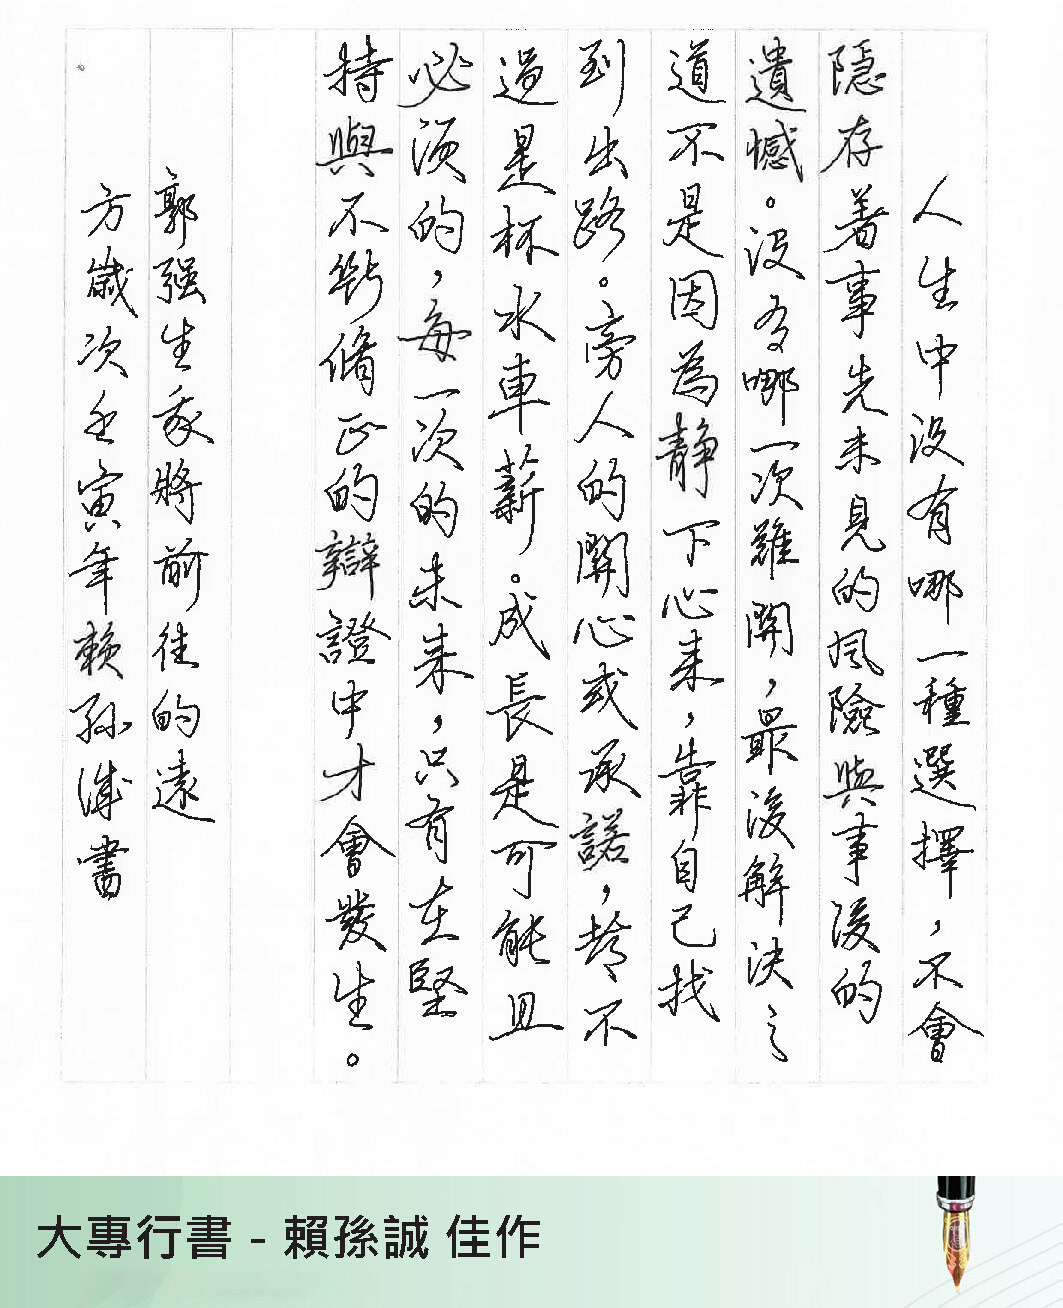 人生中沒有哪一種選擇，不會
隱存著事先未見的風險與事後的
遺憾。沒有哪一次難關，最後解決之
道不是因為靜下心來，靠自己找
到出路。旁人的關心或承諾，都不
過是杯水車薪。成長是可能且
必須的，每一次的未來，只有在堅
持與不斷修正的辯證中才會發生。
郭強生我將前往的遠
方歲次壬寅年賴孫誠書
大專行書 - 賴孫誠 佳作